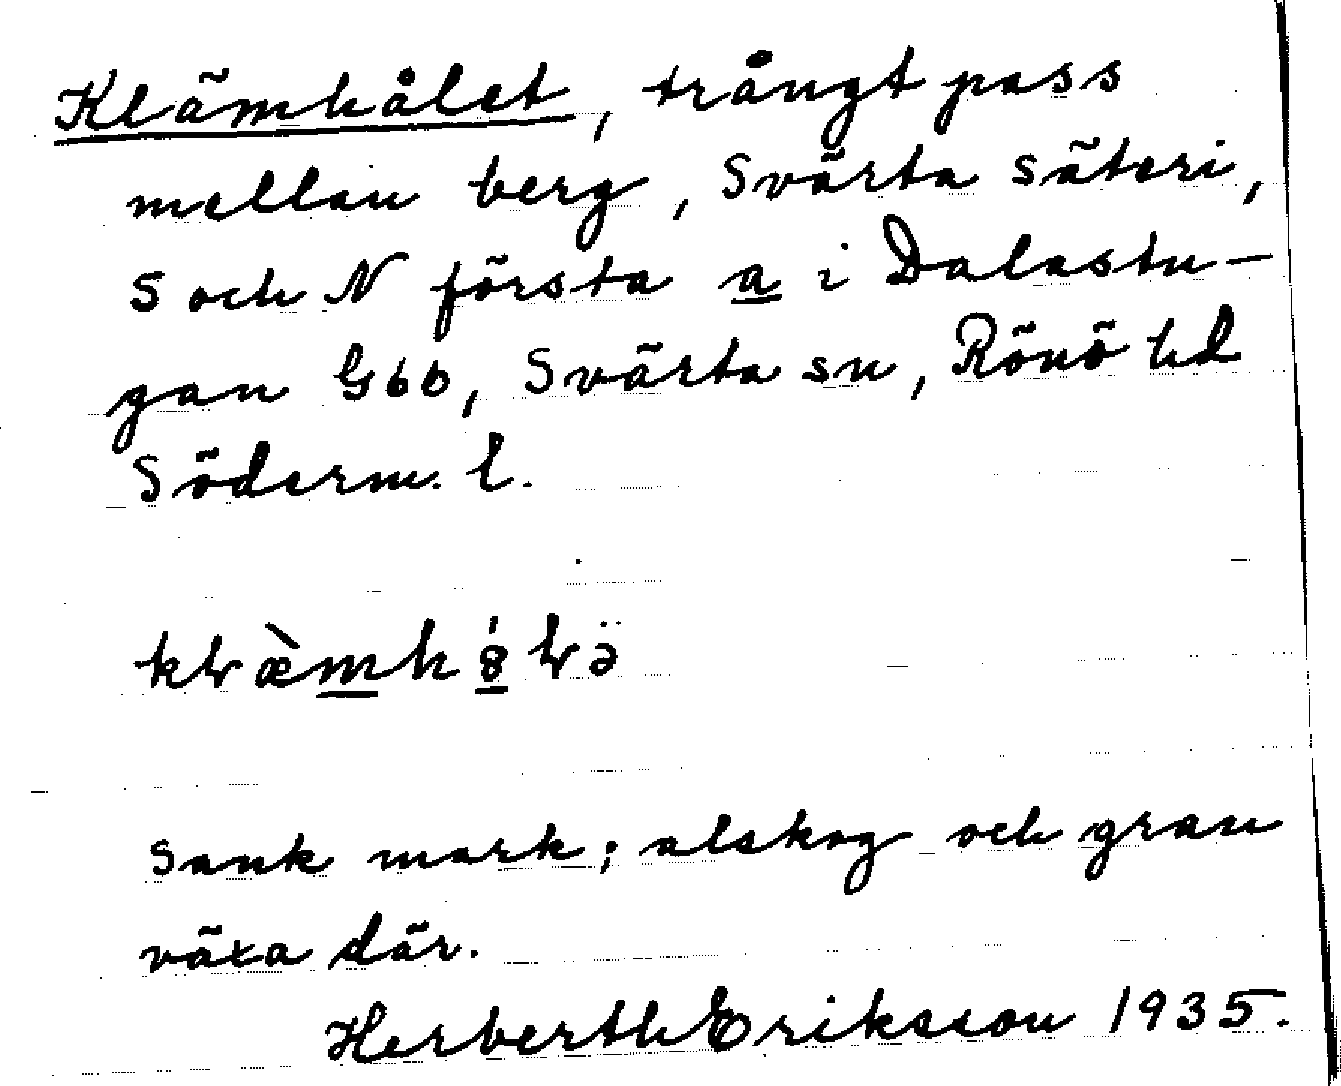 Klämhålet, trångt pass
mellan berg, Svärta säteri,
S och N första a i Dalastu-
gan G6b, Svärta sn, Rönö hd
Söderm. l.
Sank mark; alskog och gran
växa där.
Herberth Eriksson 1935.